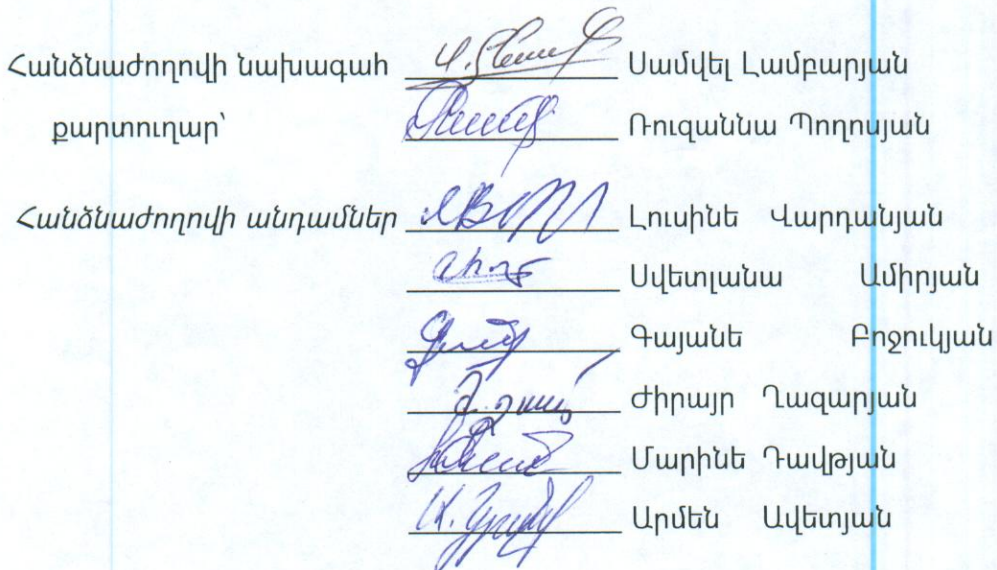 Հանձնաժողովի նախագահ Սամվել Լամբարյան
քարտուղար՝ Ռուզաննա Պողոսյան
Հանձնաժողովի անդամներ Լուսինե Վարդանյան
Սվետլանա Ամիրյան
Գայանե Բոջուկյան
Ժիրայր Ղազարյան
Մարինե Դավթյան
Արմեն Ավետյան